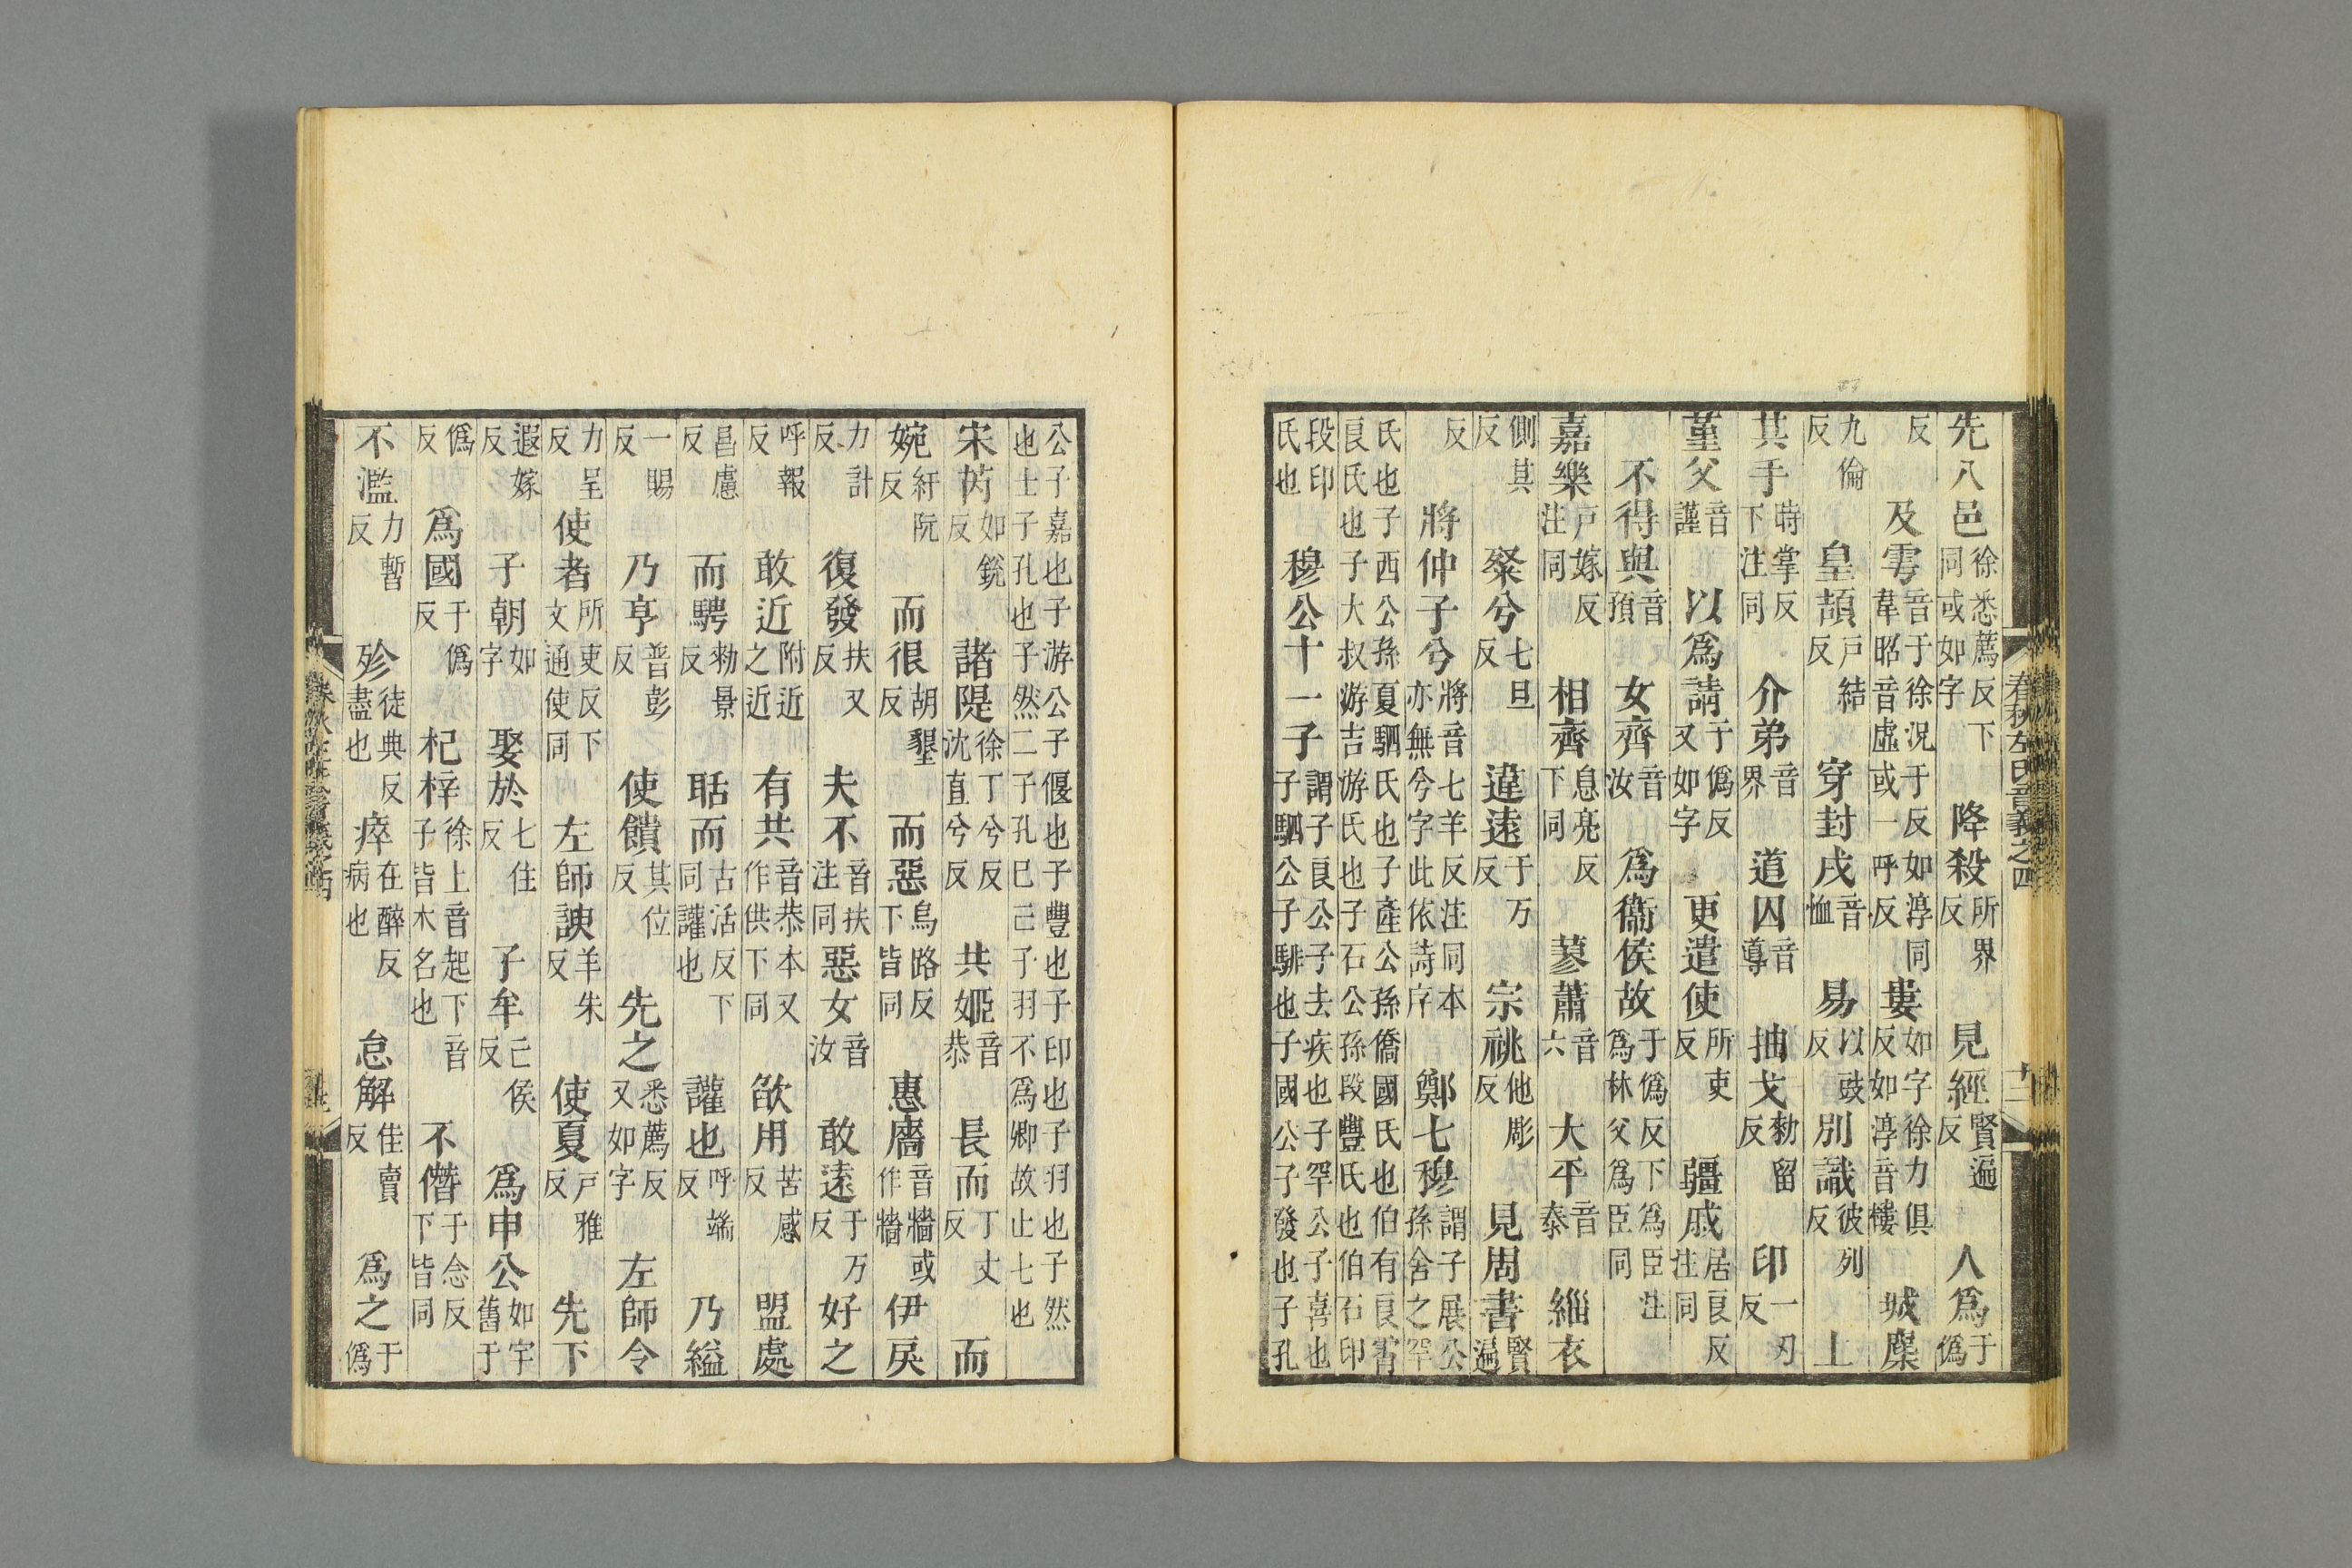 春秋左氏音義之四
十二
先八邑徐悉薦反下同或如字降殺所界反見經賢遍反人爲于僞
反及雩音于徐況于反如淳同韋昭音虛或一呼反婁如字徐力俱反如淳音樓城麇
九倫反皇頡戶結反穿封戌音恤易以豉反別識彼列反上
其手時掌反下注同介弟音界道囚音導抽戈勑留反印一刃反
堇父音謹以爲請于僞反又如字更遣使所吏反疆戚居良反注同
不得與音預女齊音汝爲衞侯故于僞反下爲臣臣注爲林父爲臣同
嘉樂戶嫁反注同相齊息亮反下同蓼蕭音六大平音泰緇衣
側其反粲兮七旦反違遠于万反宗祧他彫反見周書賢遍
反將仲子兮將音七羊反注同本亦無兮字此依詩序鄭七穆謂子展公孫舍之罕
氏也子西公孫夏駟氏也子產公孫僑國氏也伯有良霄良氏也子大叔游吉游氏也子石公孫段豐氏也伯石印
段印氏也穆公十一子謂子良公子去疾也子罕公子喜也子駟公子騑也子國公子發也子孔
公子嘉也子游公子偃也子豐也子印也子羽也子然也士子孔也子然二子孔已己子羽不爲卿故止七也
宋芮如銳反諸隄徐丁兮反沈直兮反共姬音恭長而丁丈反而
婉紆阮反而很胡墾反而惡烏路反下皆同惠牆音牆或作牆伊戾
力計反復發扶又反夫不音扶注同惡女音汝敢遠于万反好之
呼報反敢近附近之近有共音恭本又作供下同欿用苦感反盟處
昌慮反而騁勑景反聒而古活反下同讙也讙也呼端反乃縊
一賜反乃亨普彭反使饋其位反先之悉薦反又如字左師令
力呈反使者所吏反下文通使同左師諛羊朱反使夏戶雅反先下
遐嫁反子朝如字娶於七住反子牟亡侯反爲申公如字舊于
僞反爲國于僞反杞梓徐上音起下音子皆木名也不僭于念反下皆同
不濫力暫反殄徒典反盡也瘁在醉反病也怠解佳賣反爲之于僞